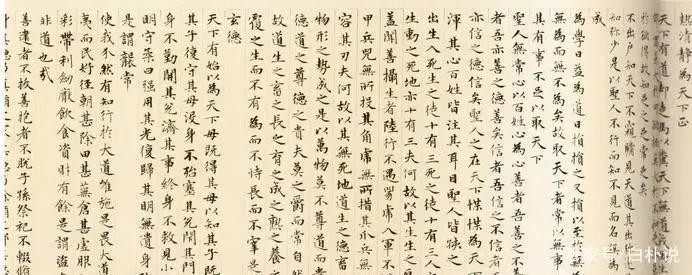 熱清靜為天下正
天下有道却走馬以糞天下
不出戶知天下不窺牖見天道其出彌
知彌少是以聖人不行而知不見而名
成
為學日益為道日損損之又損以至於
無為而無不為矣故取天下者常以無
其有事不足以取天下
聖人無常心以百姓心為心善者吾善之不
者吾亦善之德善矣信者吾信之不信者
亦信之德信矣聖人之在天下惵惵為天下
渾其心百姓皆注其耳目聖人皆孩之
出生入死生之徒十有三死之徒十有三人
生動之死地亦十有三夫何故以其生生之
蓋聞善攝生者陸行不遇兕虎入軍不
甲兵兕無所投其角虎無所措其爪兵無
容其刃夫何故以其無死地道生之德畜
物形之勢成之是以萬物莫不尊道而貴
道之尊德之貴夫莫之爵而常自然
故道生之畜之長之育之成之熟之養之
覆之生而不有為而不恃長而不宰是
玄德
天下有始以為天下母既得其母以知其子既
其子復守其母沒身不殆塞其兌閉其門
身不勤開其兌濟其事終身不救見小
明守柔曰強用其光復歸其明無遺身
是謂襲常
使我介然有知行於大道唯施是畏大道
夷而民好徑朝甚除田甚蕪倉甚虛服
彩帶利劍厭飲食資財有餘是謂盜
非道也哉
善建者不拔善抱者不脫子孫祭祀不輟脩
白朴说